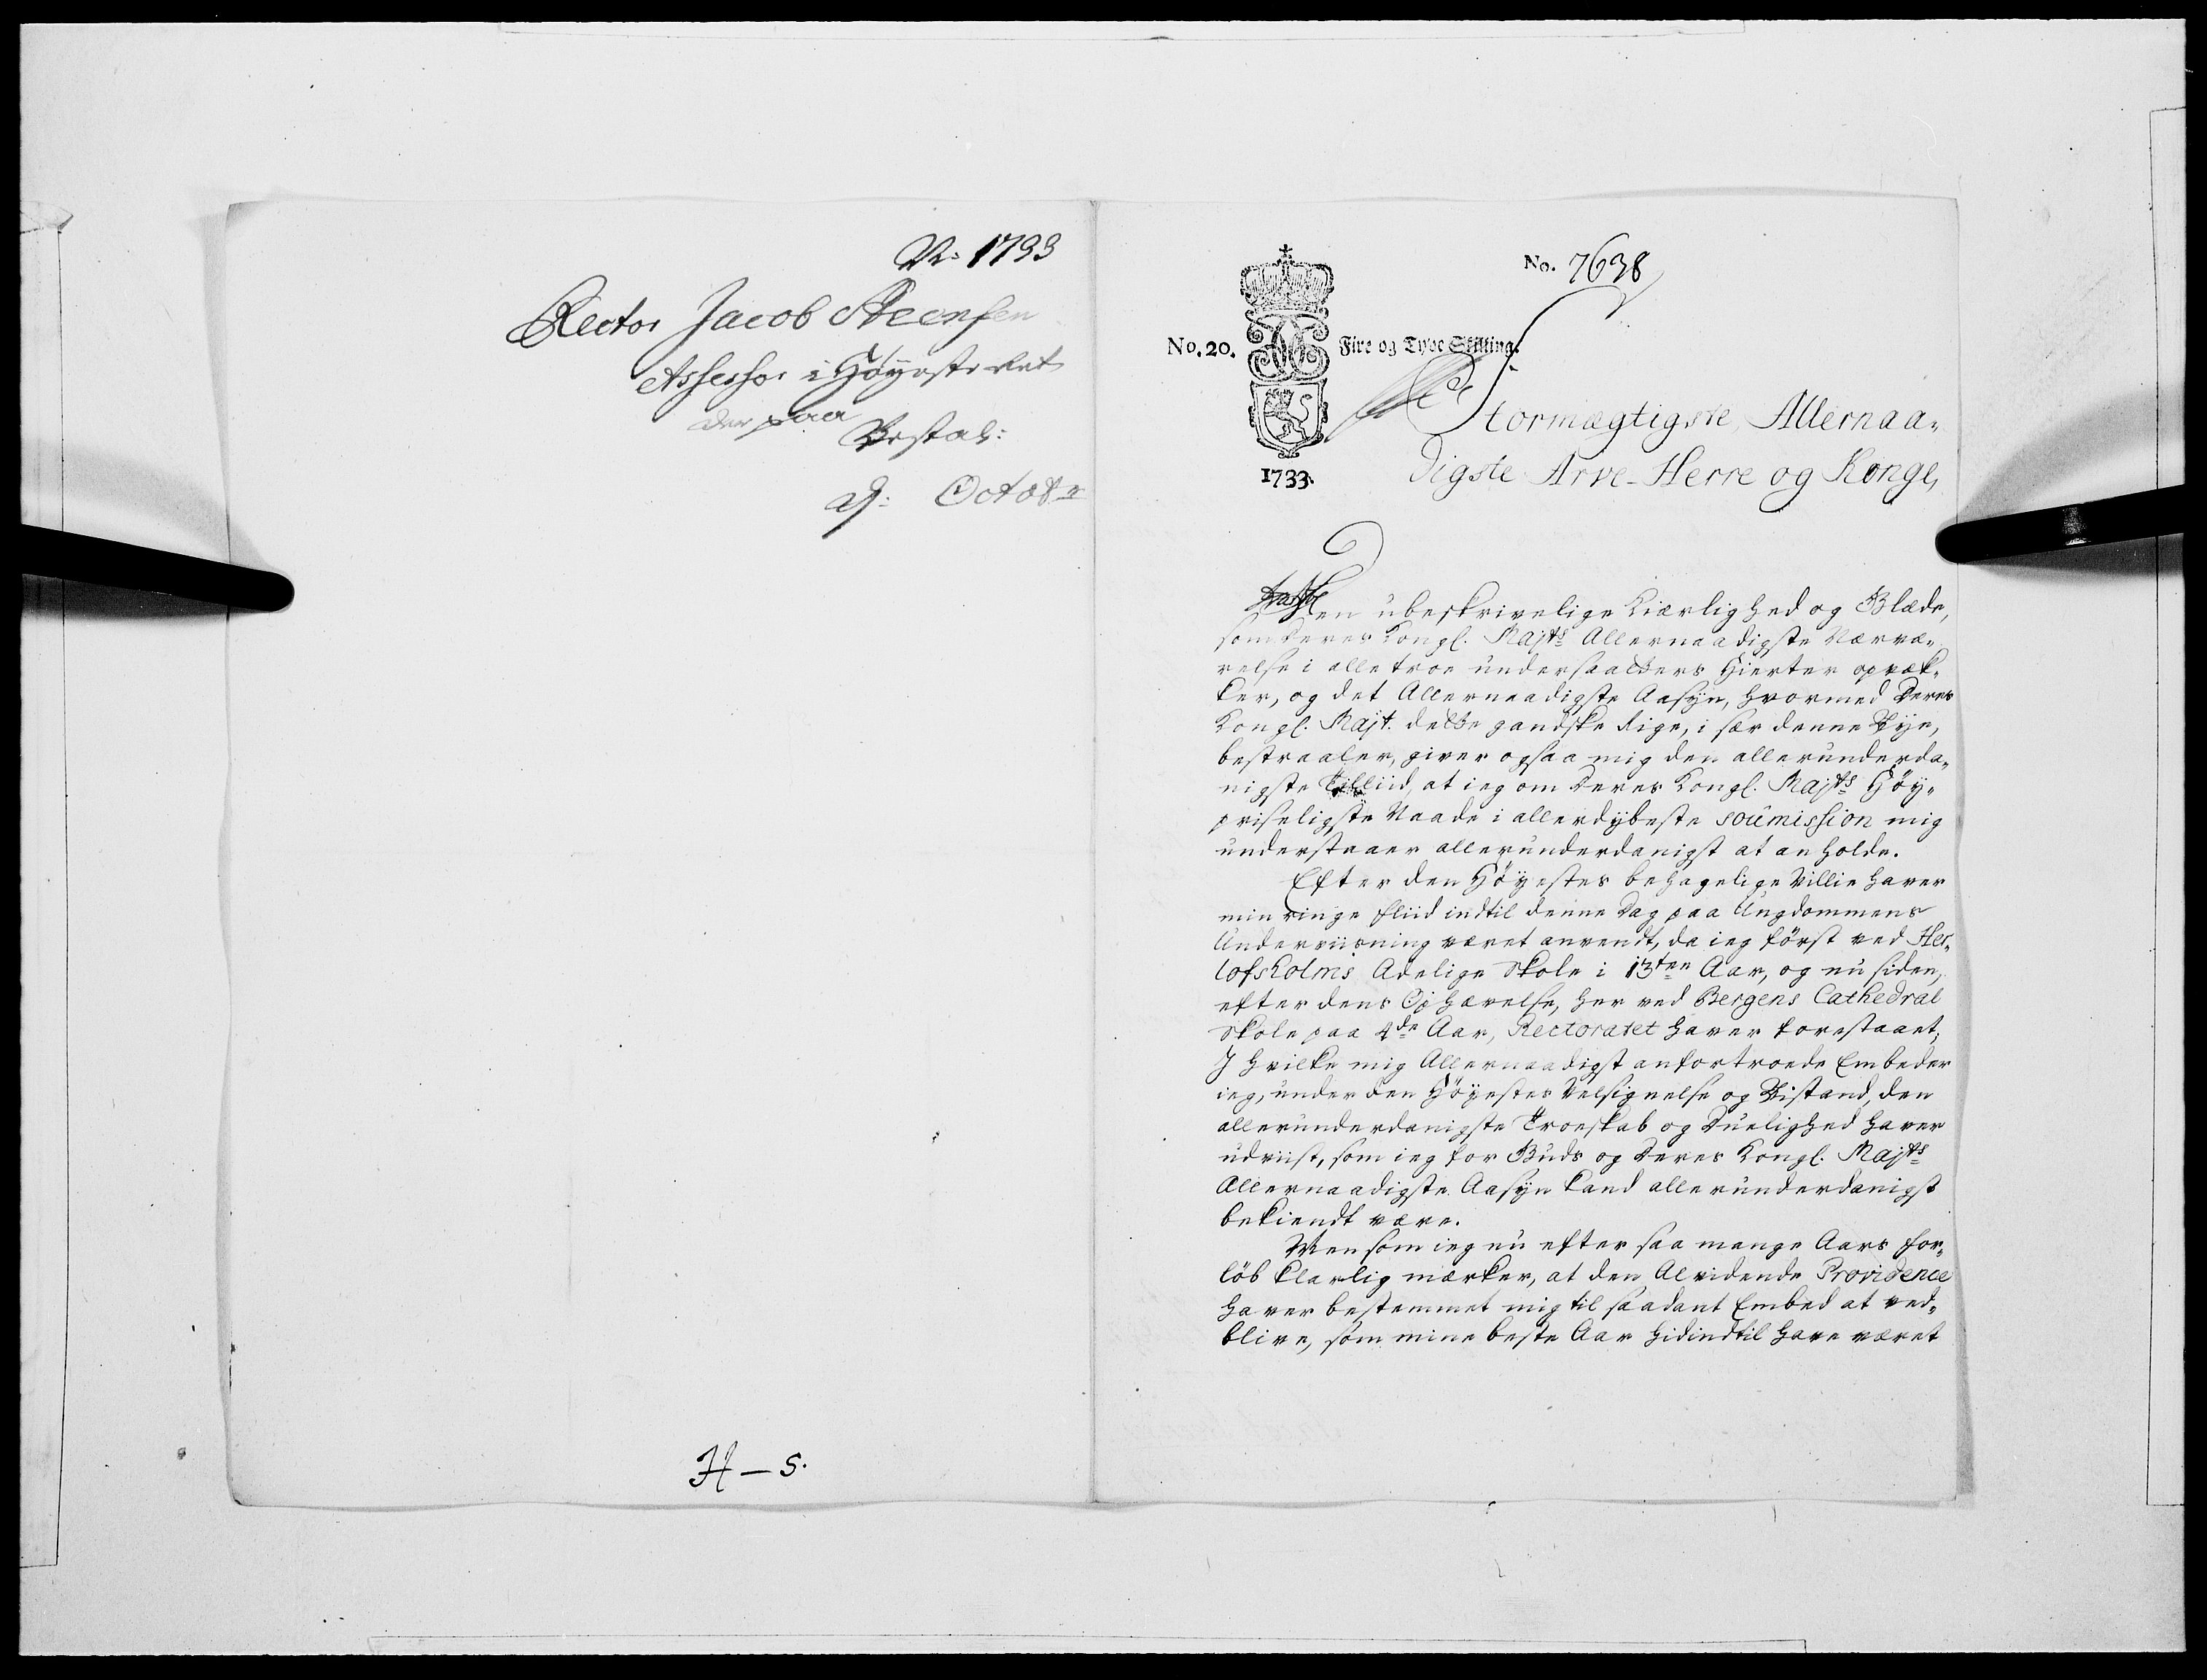 N: 1733
Rector Jacob Steensen
Assessor i Høyeste Ret
der paa
Bestal:
d: Octobr
H – S.
No. 7638
No. 20.
Fire og Tyve Skilling.
1733.
Stormægtigste, Allernaa-
digste Arve-Herre og Konge,
Den ubeskrivelige Kiærlighed og Glæde,
som Deres Kongl. Majts Allernaadigste Nærvæ-
relse i alle troe undersaatters Hierter opvæk-
ker, og det Allernaadigste Aasyn, hvormed Deres
Kongl. Majt. dette gandske Rige, i sær denne Bye,
bestraaler, giver ogsaa mig den allerunderda-
nigste Tilliid, at ieg om Deres Kongl. Majts Høy-
priseligste Naade i allerdybeste soumission mig
understaaer allerunderdanigst at anholde.
Efter den Høyestes behagelige Villie haver
min ringe fliid indtil denne Dag paa Ungdommens
Underviisning været anvendt, da ieg først ved Her-
lofsholms Adelige Skole i 13ten Aar, og nu siden,
efter dens Ophævelse, her ved Bergens Cathedral
Skole paa 4de Aar, Rectoratet haver forestaaet;
I hvilke mig Allernaadigst anfortroede Embeder
ieg, under den Høyestes Velsignelse og Bistand, den
allerunderdanigste Troeskab og Duelighed haver
udviist, som ieg for Guds og Deres Kongl. Majts
Allernaadigste Aasyn kand allerunderdanigst
bekiendt være.
Men som ieg nu efter saa mange Aars for-
løb klarlig mærker, at den Alvidende Providence
haver bestemmet mig til saadant Embed at ved-
blive, som mine beste Aar hidindtil have været